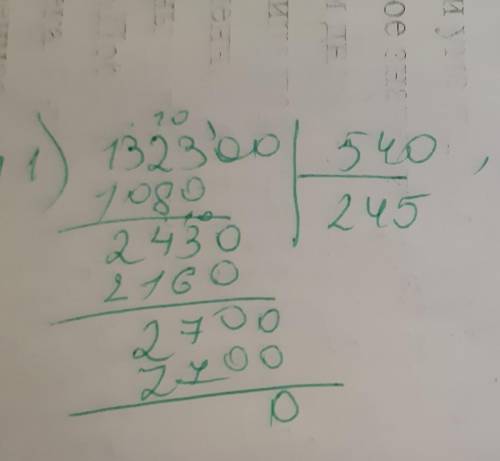 1) 132300 | 540
1080 | 245
2430
2160
2700
2700
0